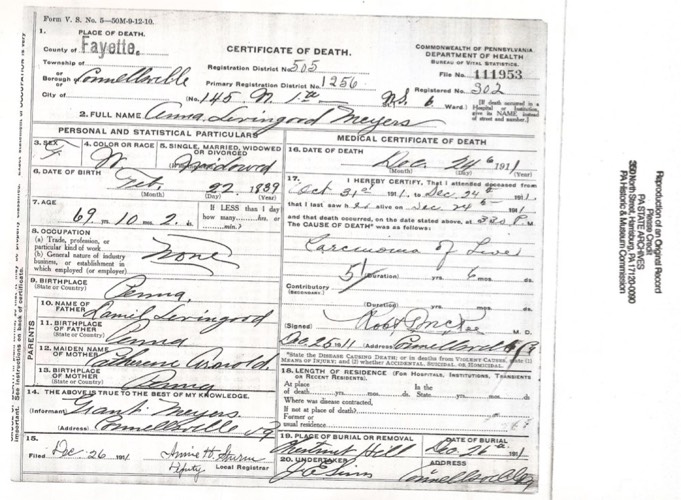 Form V. S. No. 5—50M-9-12-10.
1. PLACE OF DEATH.
County of Fayette.
Township of
or
Borough of Connellsville
or
City of
CERTIFICATE OF DEATH.
Registration District No. 505
Primary Registration District No. 1256
(No. 145 N. 1st St., 6 Ward.)
COMMONWEALTH OF PENNSYLVANIA
DEPARTMENT OF HEALTH
BUREAU OF VITAL STATISTICS.
File No. 111953
Registered No. 302
[If death occurred in a Hospital or Institution, give its NAME instead of street and number.]
2. FULL NAME Anna Livingood Meyers
PERSONAL AND STATISTICAL PARTICULARS
3. SEX F
4. COLOR OR RACE W
5. SINGLE, MARRIED, WIDOWED OR DIVORCED Widowed
6. DATE OF BIRTH
Feb. 22 1839
(Month) (Day) (Year)
7. AGE
69 yrs. 10 mos. 2 ds.
If LESS than 1 day how many... hrs. or... min.?
8. OCCUPATION
(a) Trade, profession, or particular kind of work
(b) General nature of industry, business, or establishment in which employed (or employer)
None
9. BIRTHPLACE
(State or Country) Penna.
PARENTS
10. NAME OF FATHER Daniel Livingood
11. BIRTHPLACE OF FATHER
(State or Country) Penna
12. MAIDEN NAME OF MOTHER Catherine Arnold
13. BIRTHPLACE OF MOTHER
(State or Country) Penna
14. THE ABOVE IS TRUE TO THE BEST OF MY KNOWLEDGE.
(Informant) Grant Meyers.
(Address) Connellsville Pa
15.
Filed Dec 26 1911
Deputy Local Registrar
MEDICAL CERTIFICATE OF DEATH
16. DATE OF DEATH
Dec. 24 1911
(Month) (Day) (Year)
17. I HEREBY CERTIFY, That I attended deceased from
Oct 31st 1911, to Dec. 24 1911,
that I last saw her alive on Dec 24 1911
and that death occurred, on the date stated above, at P. M.
The CAUSE OF DEATH* was as follows:
Carcinoma of Liver
(Duration) yrs. 6 mos. ds.
Contributory
(SECONDARY)
(Duration) yrs. mos. ds.
(Signed) M. D.
Dec 25 1911 (Address) Connellsville Pa
*State the DISEASE CAUSING DEATH; or in deaths from VIOLENT CAUSES, state (1) MEANS OF INJURY; and (2) whether ACCIDENTAL, SUICIDAL OR HOMICIDAL.
18. LENGTH OF RESIDENCE (FOR HOSPITALS, INSTITUTIONS, TRANSIENTS OR RECENT RESIDENTS).
At place of death yrs. mos. ds. In the State yrs. mos. ds.
Where was disease contracted,
If not at place of death?
Former or
usual residence
19. PLACE OF BURIAL OR REMOVAL
Chestnut Hill
DATE OF BURIAL
Dec. 26 1911
20. UNDERTAKER
J. E. Sims
ADDRESS
Connellsville, Pa
Reproduction of an Original Record
Please Credit
PA STATE ARCHIVES
350 North Street, Harrisburg, PA 17120-0090
PA Historic & Museum Commission